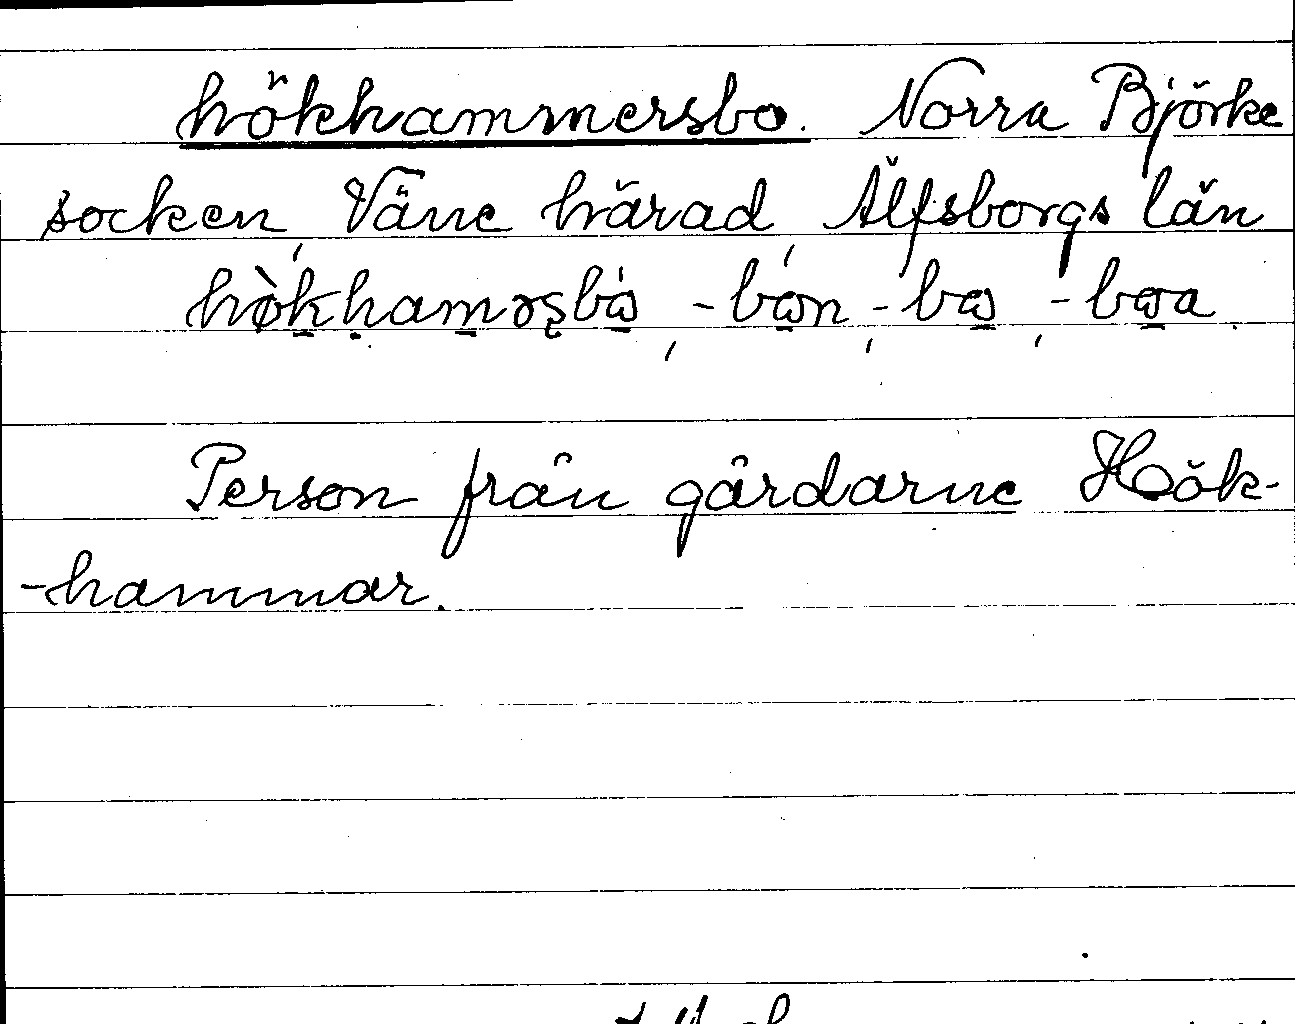 hökhammersbo. Norra Björke
socken, Väne härad, Älfsborgs län
hø̀k̠ḥam̠əʂbώ̠, -bω̠n, -bω̠, -bω̠a.
Person från gårdarne Hök-
-hammar.